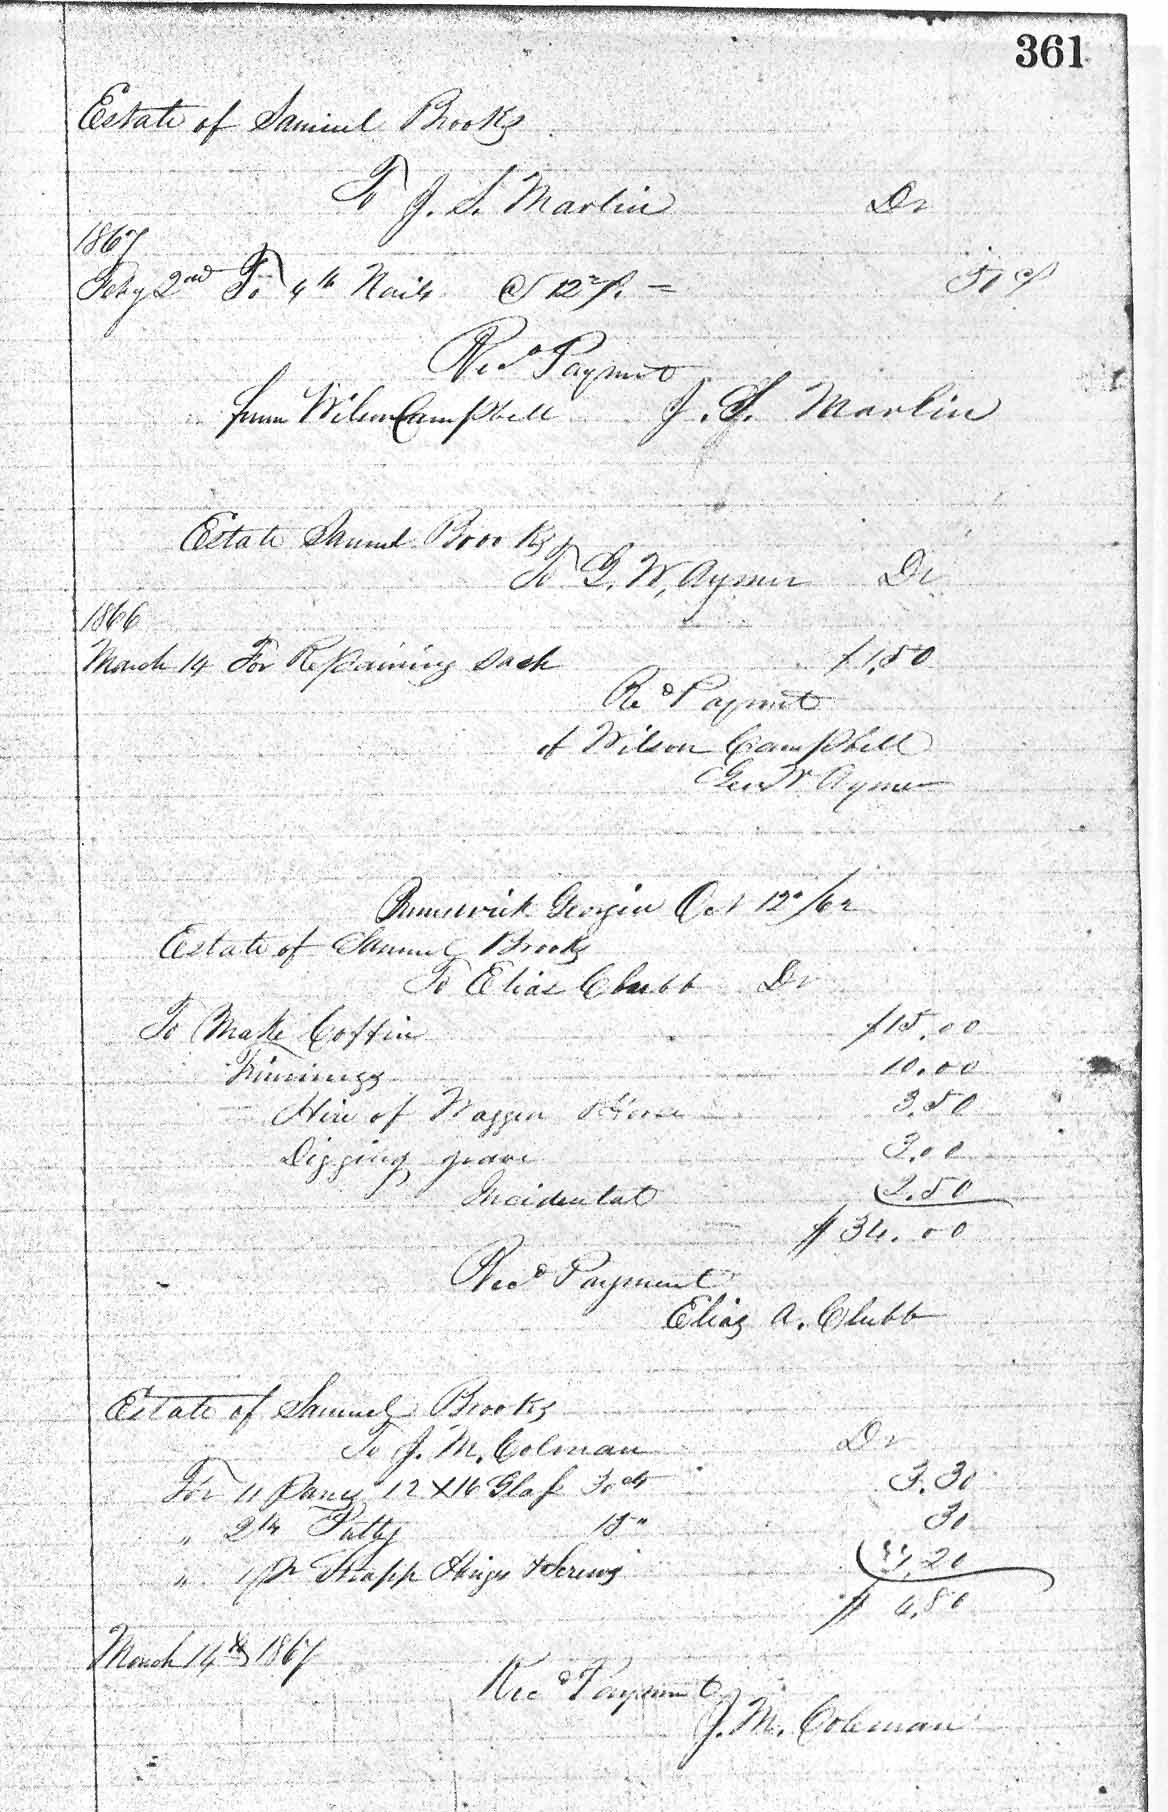 361
Estate of Samuel Brooks
To J. S. Marlin Dr
1867
Feby 2nd To 4 lb Nails @ 12 = 50 cts
Recd Paymet
from Wilson Campbell J. S. Marlin
Estate Samuel Brooks
To G. W. Aymer Dr
1866
March 14 For Repairing Sash $1.50
Recd Paymet
of Wilson Campbell
Geo W Aymer
Brunswick Georgia Oct 12 /62
Estate of Samuel Brooks
To Elias Clubb Dr
To Make Coffin $15.00
Trimings 10.00
Hire of Waggon & Horse 3.50
Digging grave 3.00
Incidental 2.50
$34.00
Recd Payment
Elias A. Clubb
Estate of Samuel Brooks
To J. M. Colman Dr
For 11 Panes 12 x 16 Glass 30 cts 3.30
" 2 lb Putty 15 " 30
" 1 pr Strapp Hinges & Screws 1,20
$ 4.80
March 14th 1867
Recd Payment
J. M. Coleman